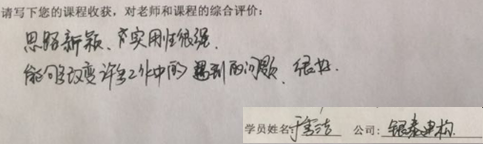 请写下您的课程收获，对老师和课程的综合评价：
思路新颖、实用性很强、
能够改变许多工作中的遇到的问题、很好.
学员姓名：于雪洁 公司：银泰建构